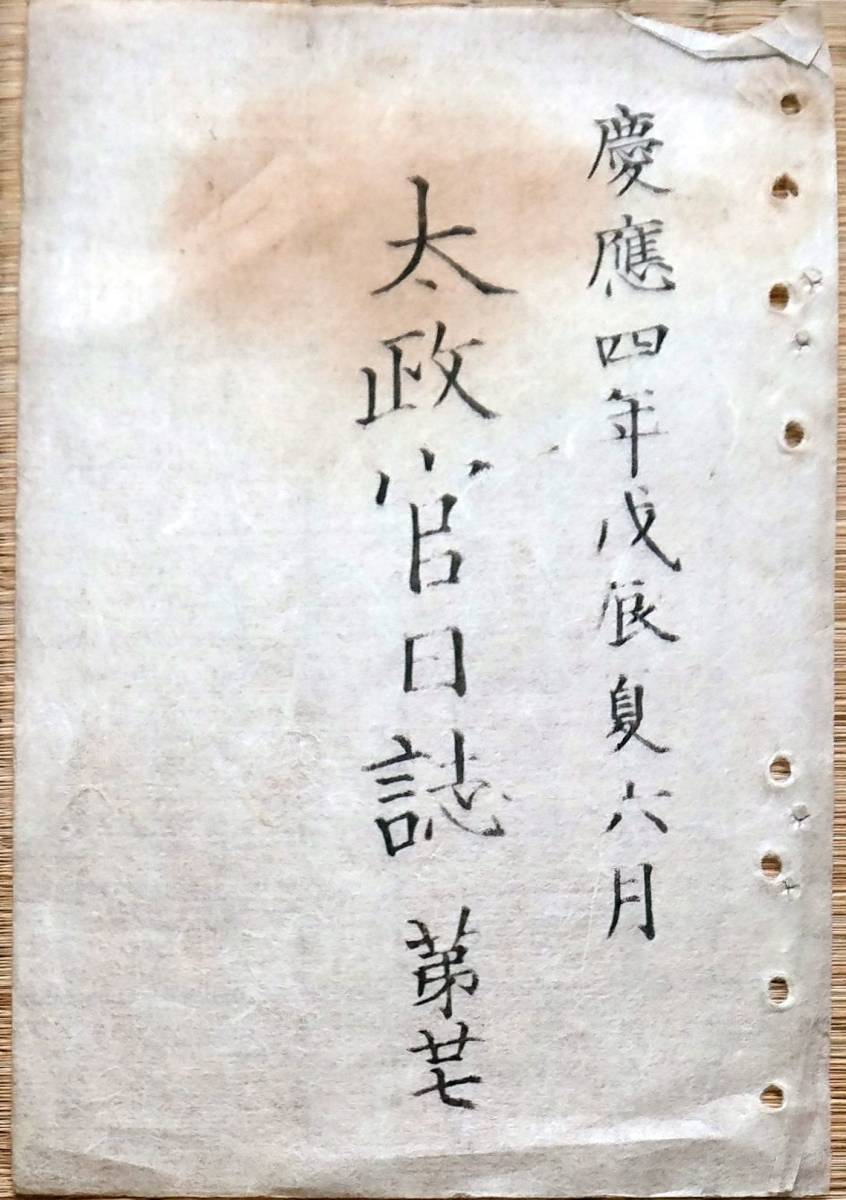 慶應四年戊辰夏六月
太政官日誌 第廿七